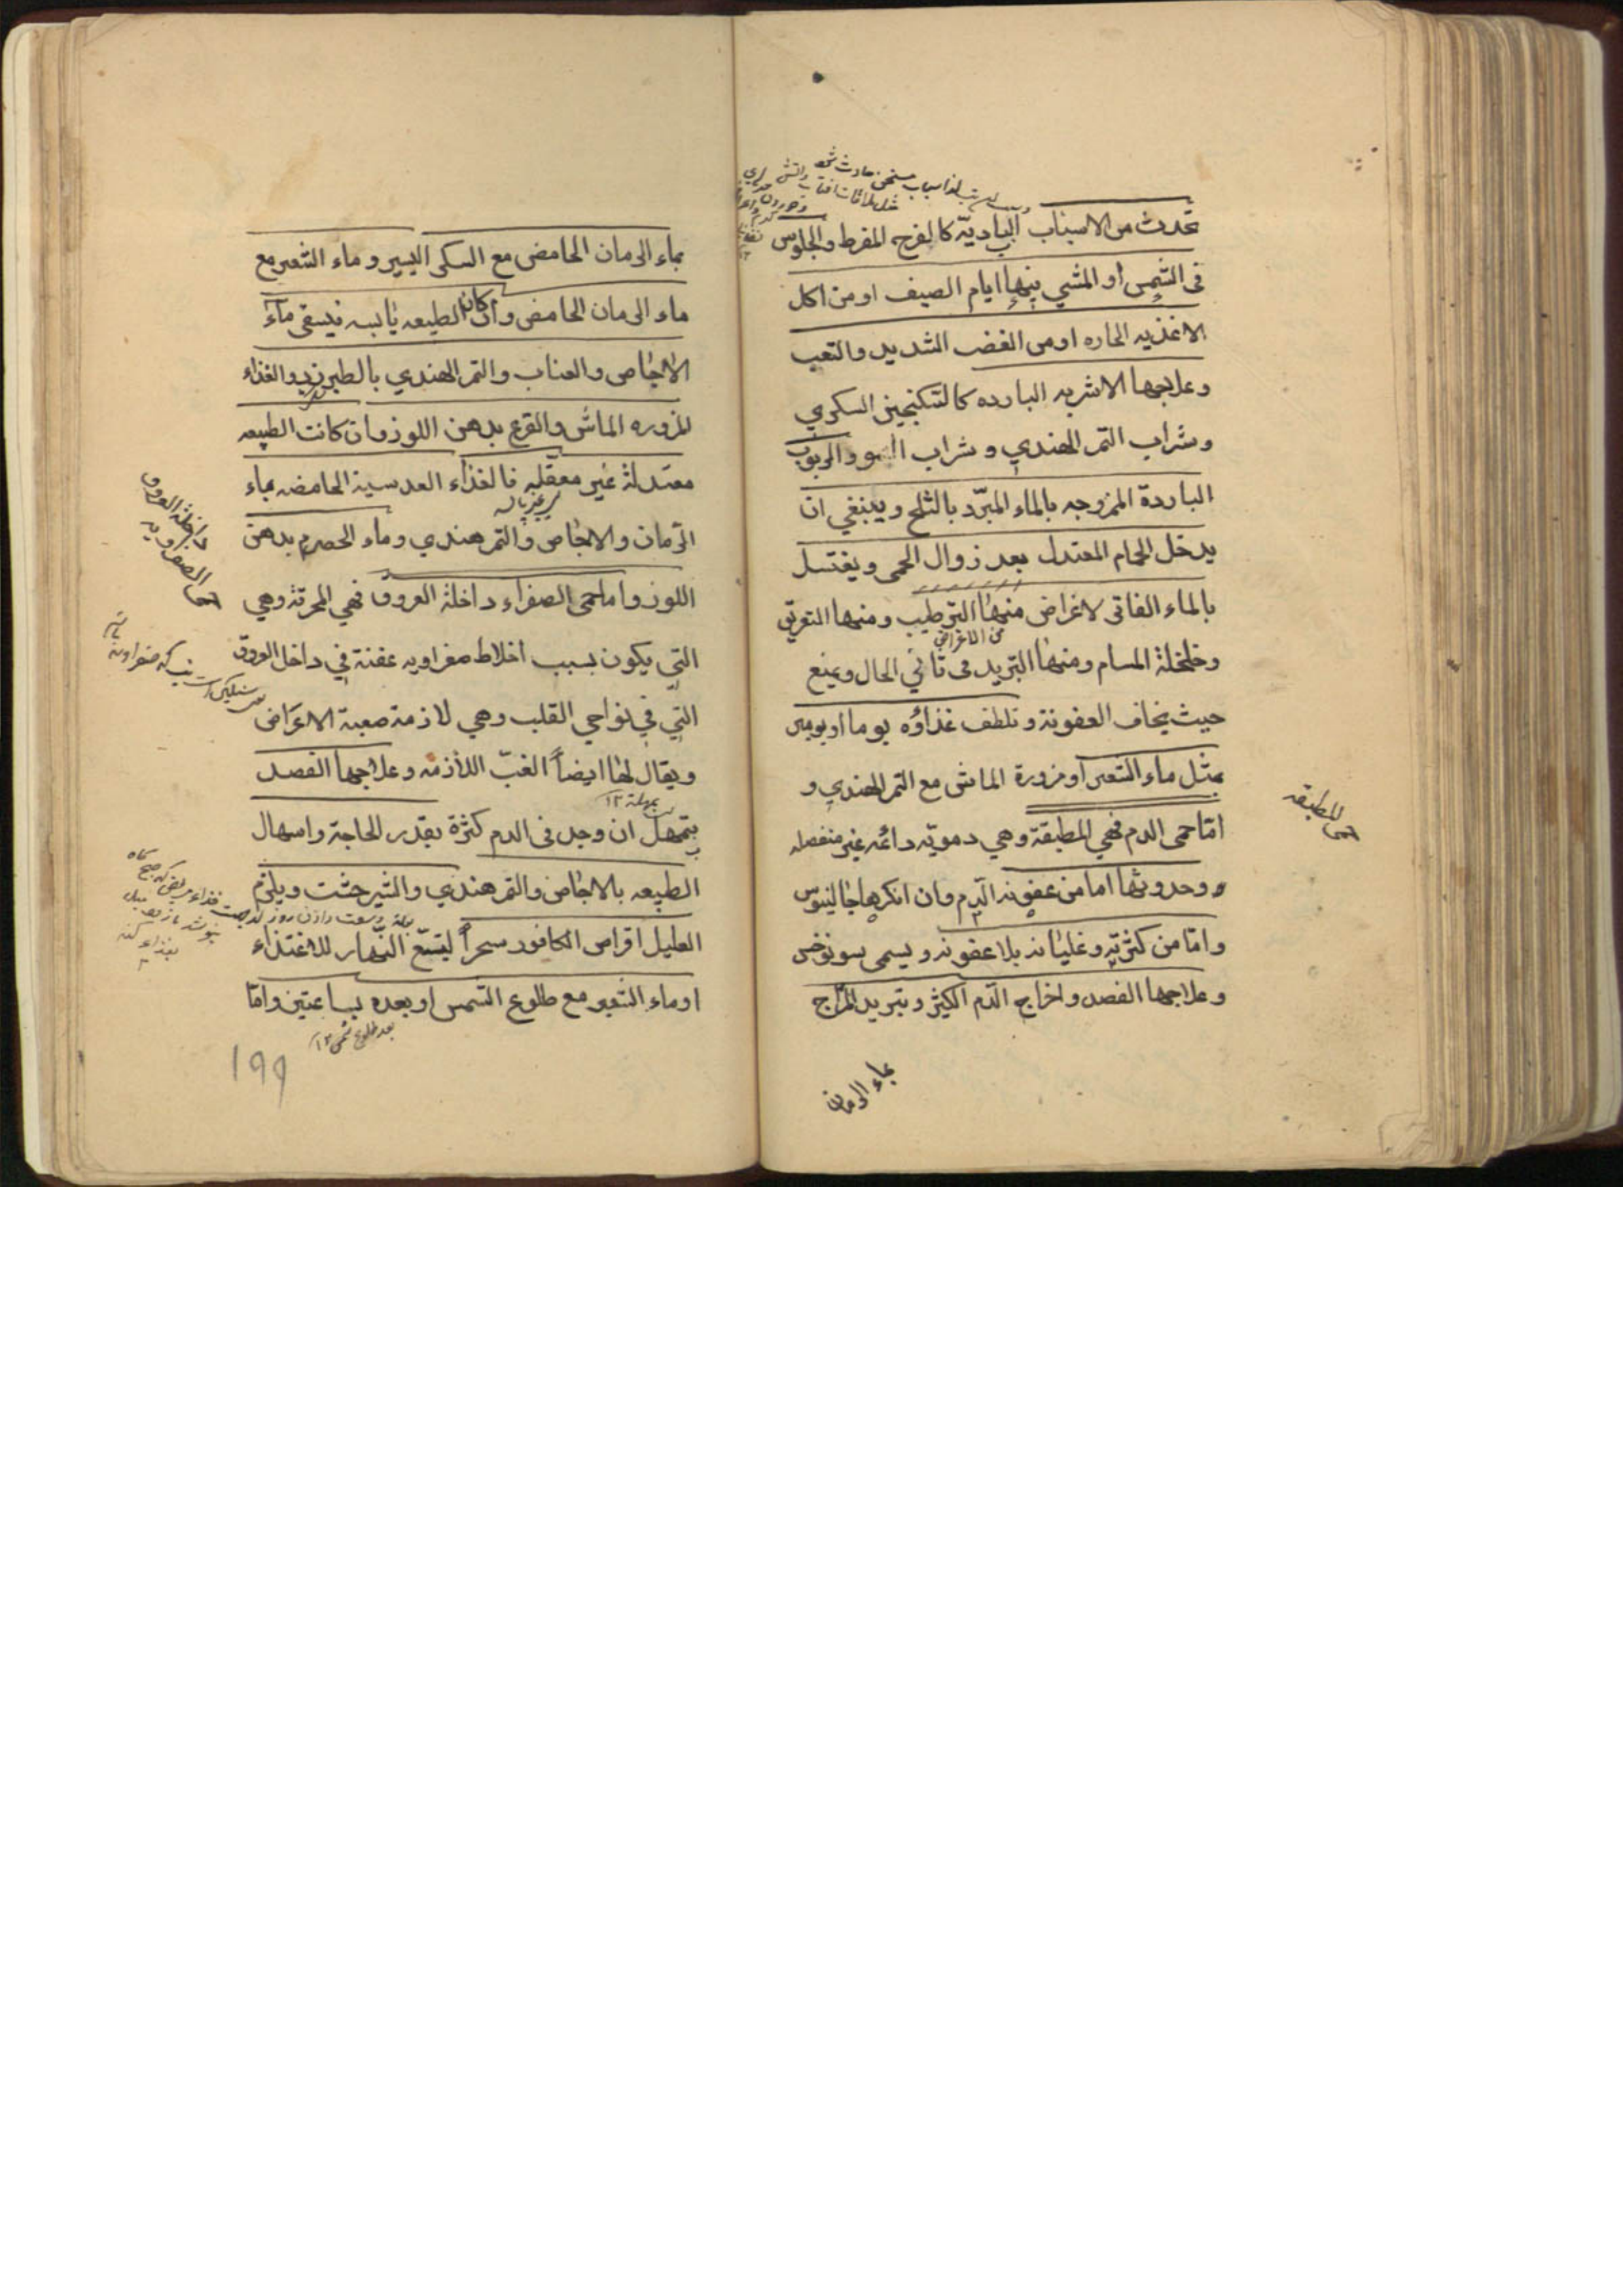 تحدث من الاسباب البادیة کالفرح المفرط والجلوس
فی الشمس او المشی فیها ایام الصیف او من اکل
الاغذیه الحاره او من الغضب الشدید والتعب
وعلاجها الاشربه البارده کالسکنجبین السکري
وشراب التمر الهندي وشراب والربوب
الباردة الممزوجه بالماء المبرّد بالثلج وینبغي ان
یدخل الحمام المعتدل بعد زوال الحمی ویغتسل
بالماء الفاتر لاغراض منها الترطیب ومنها التعریق
من الاغراض
وخلخلة المسام ومنها التبرید فی ثاني الحال ویمنع
حیث یخاف العفونة وتلطف غذاؤه یوما او یومین
بمثل ماء الشعیر او مزورة الماش مع التمر الهندي و
امّا حمی الدم فهي المطبقة وهي دمویّه دائمه غیر منفصله
وحدوثها اما من عفونه الدّم وان انکرها جالینوس
وامّا من کثرته وغلیانه بلا عفونه ویسمی سونوخس
وعلاجها الفصد واخراج الدّم الکثیر وتبرید المزاج
بماء الرمان
حمی المطبقه
بماء الرمان الحامض مع السکر الیسیر وماء الشعیر مع
ماء الرمان الحامض وان کان الطبیعه یابسه فیسقی ماء
الاجاص والعناب والتمر الهندي بالطبرزد والغذاء
المزوره الماش والقرع بدهن اللوز وان کانت الطبیعه
معتدلة غیر معقله فالغذاء العدسیة الحامضه بماء
الرّمان والاجاص والتمر هندي وماء الحصرم بدهن
اللوز واما حمی الصفراء داخلة العروق فهي المحرقة وهي
التي یکون بسبب اخلاط صفراویه عفنة في داخل العروق
التي في نواحي القلب وهي لازمة صعبة الاعراض
ویقال لها ایضاً الغبّ اللازمه وعلاجها الفصد
بمهلة ١٢
بتمهل ان وجد فی الدم کثرة بقدر الحاجة واسهال
الطبیعه بالاجاص والتمر هندي والشیرخشت ویلزم
العلیل اقراص الکافور سحراً لیتسّع النّهار للاغتذاء
او ماء الشعیر مع طلوع الشمس او بعده بساعتین وامّا
بعد طلوع شمس ١٢
حمی الصفراویه
داخلة العروق
١٩٩